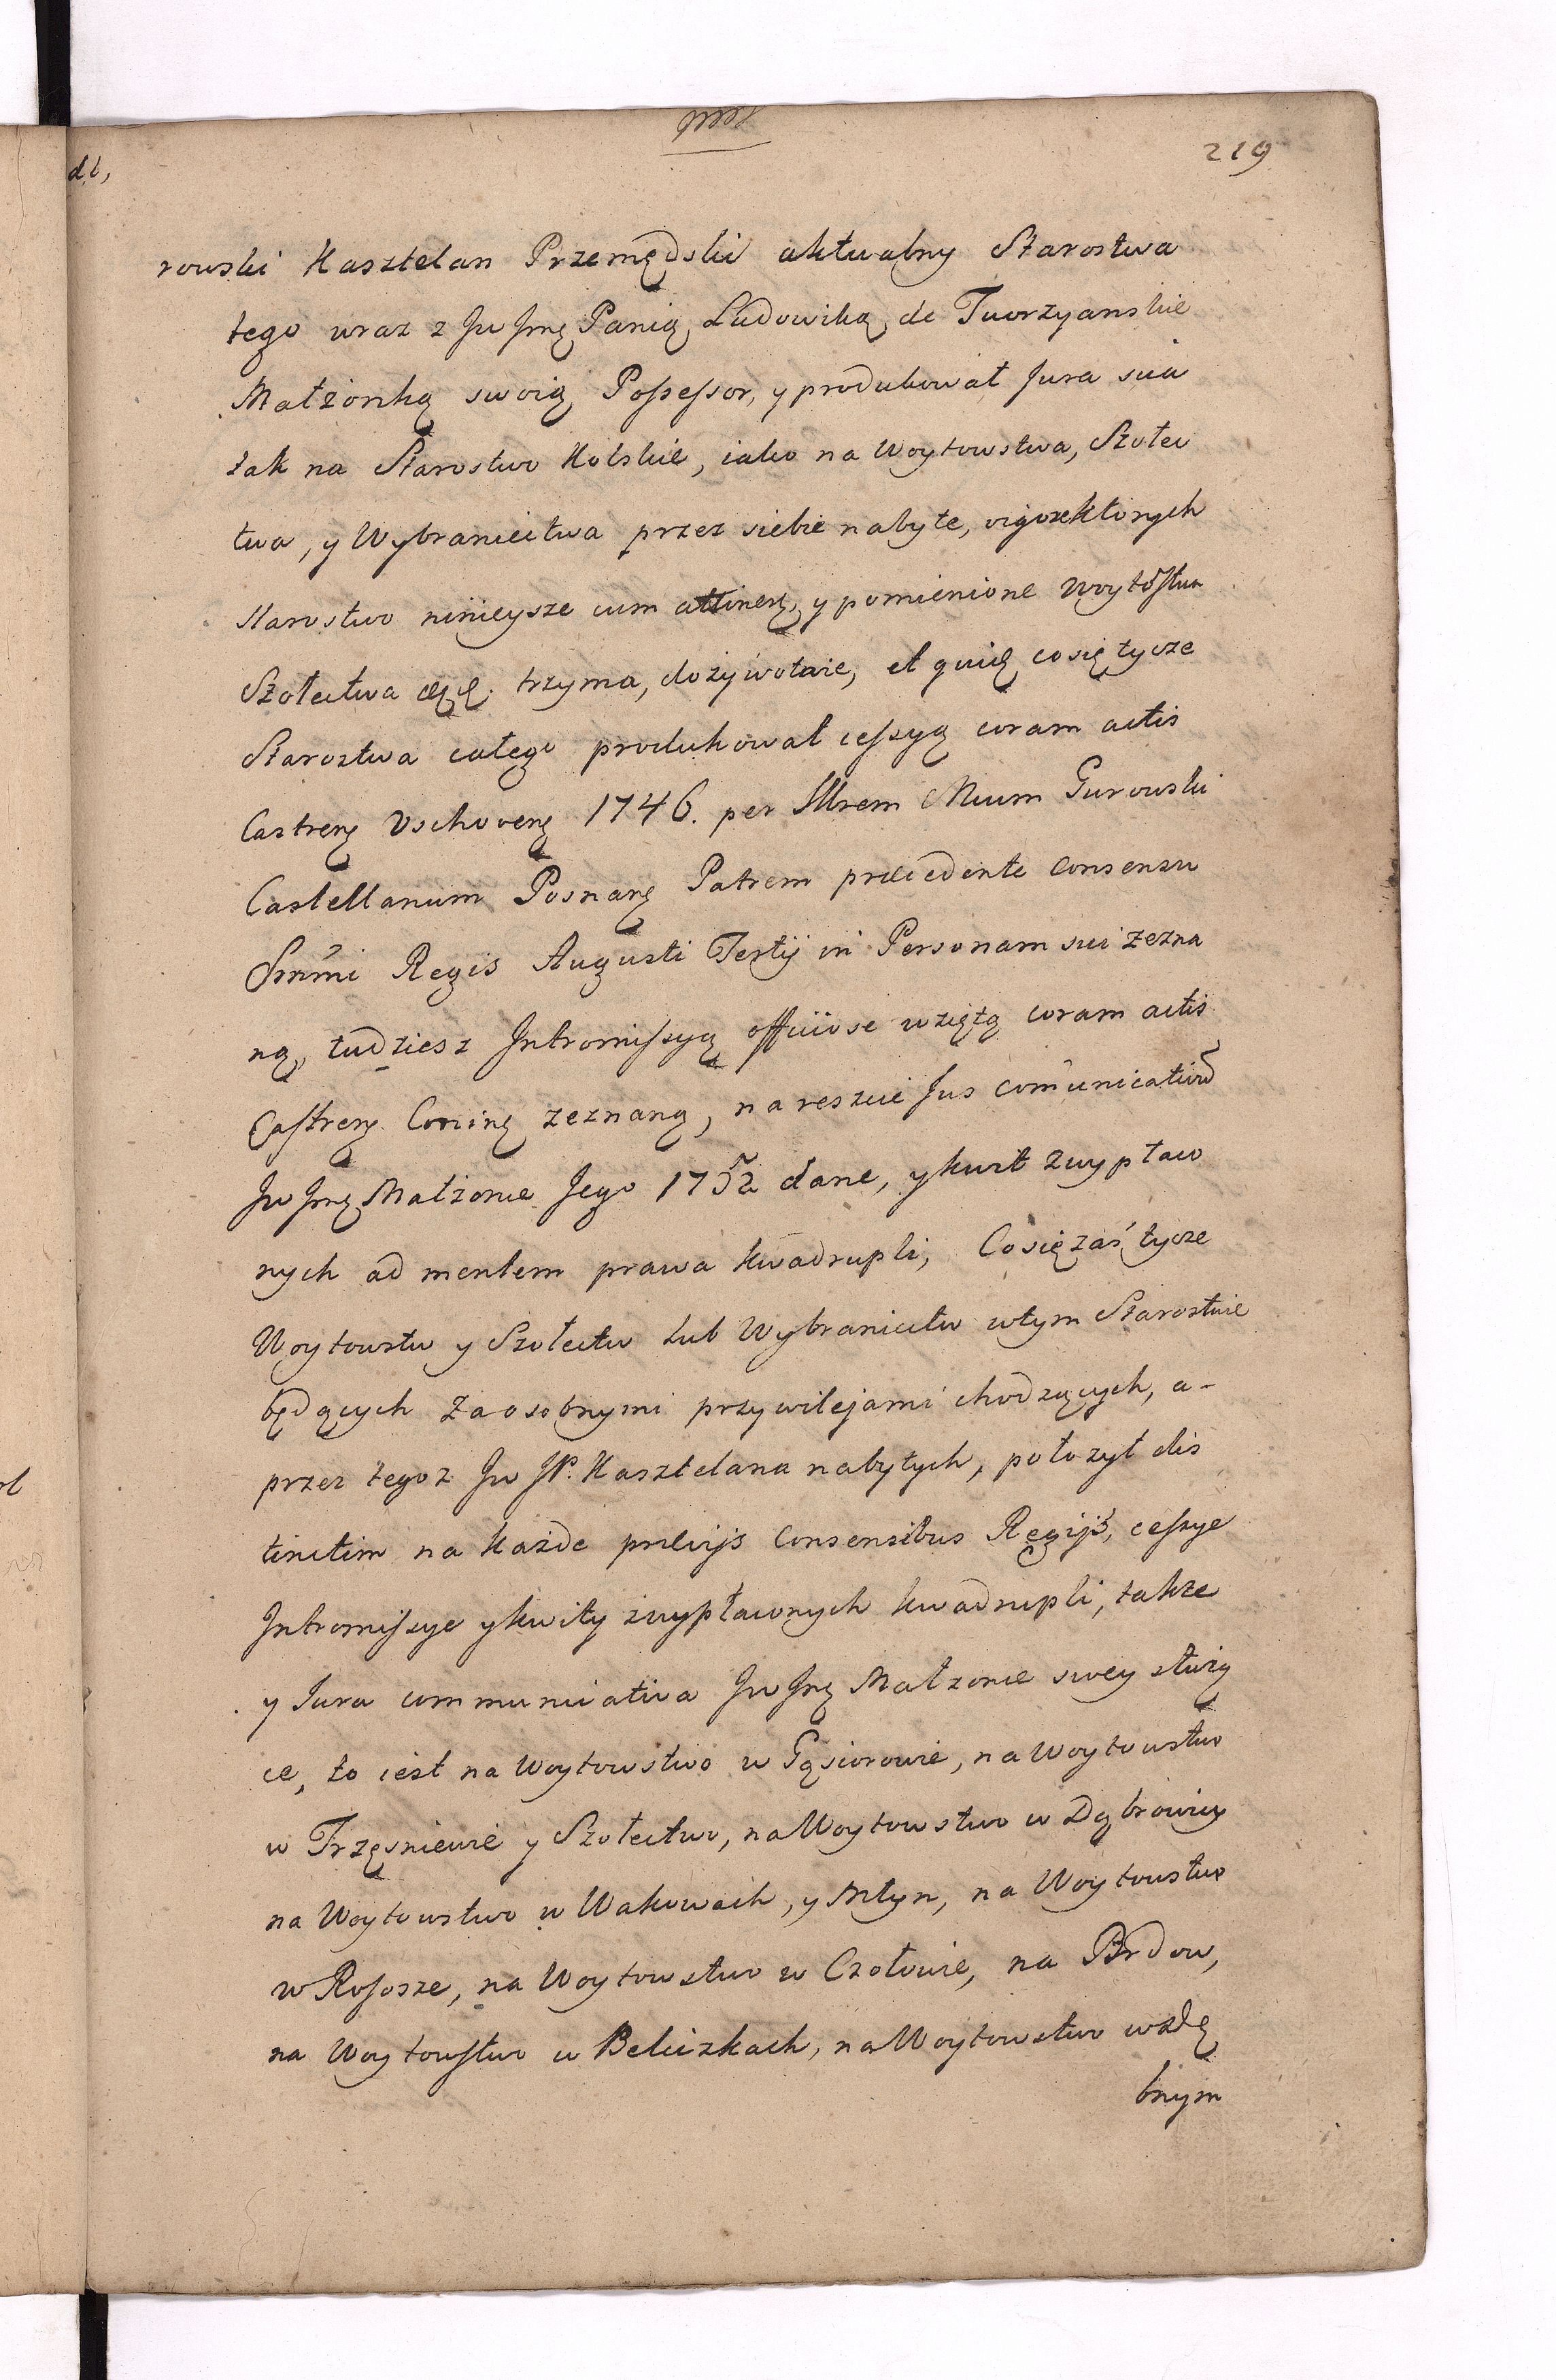 219
rowski Kasztelan Przemędski aktualny Starostwa
tego wraz z Jw Jmę Panią Ludowiką de Tworzyanskie
Małżonką swoią Possessor, y produkował Jura sua
tak na Starostwo Kolskie, iako na Woytowstwa, Szołec
twa, y Wybraniectwa przez siebie nabyte, vigore których
Starostwo ninieysze cum attinen, y pomienione Woytostwa
Szołectwa trzyma, dożywotnie, et quid co się tycze
Starostwa całego produkował cessyą coram actis
Castren Vschoven 1746. per Illrem Mcum Gurowski
Castellanum Posnan Patrem præcedente Consensu
Srnmi Regis Augusti Tertij in Personam sui zezna
ną, tudziesz Intromissyą officiose wziętą coram actis
Castren Conin zeznaną, nareszcie Jus comunicativu
Jw Jmę Małżonce Jego 1752 dane, y kwit zwypław
nych ad mentem prawa kwadrupli, Co się zaś tycze
Woytowstw y Szołectw Lub Wybraniectw wtym Starostwie
będących za osobnymi przywilejami chodzących, a-
przez tegoz Jw JP. Kasztelana nabytych, położył dis
tinctim na każde præviis Consensibus Regijs, cessye
Intromissye y kwity zwypławnych kwadrupli, takze
y Jura communicativa Jw Jmę Małzonce swey służą
ce, to iest na Woytowstwo w Gąsiorowie, na Woytowstwo
w Trzęsniewie y Szołectwo, na Woytowstwo w Dąbrowicy
na Woytowstwo w Wakowach, y Młyn, na Woytowstwo
w Rososze, na Woytowstwo w Czołowie, na Brdow,
na Woytowstwo w Beliczkach, na Woytowstwo wzdę
bnym